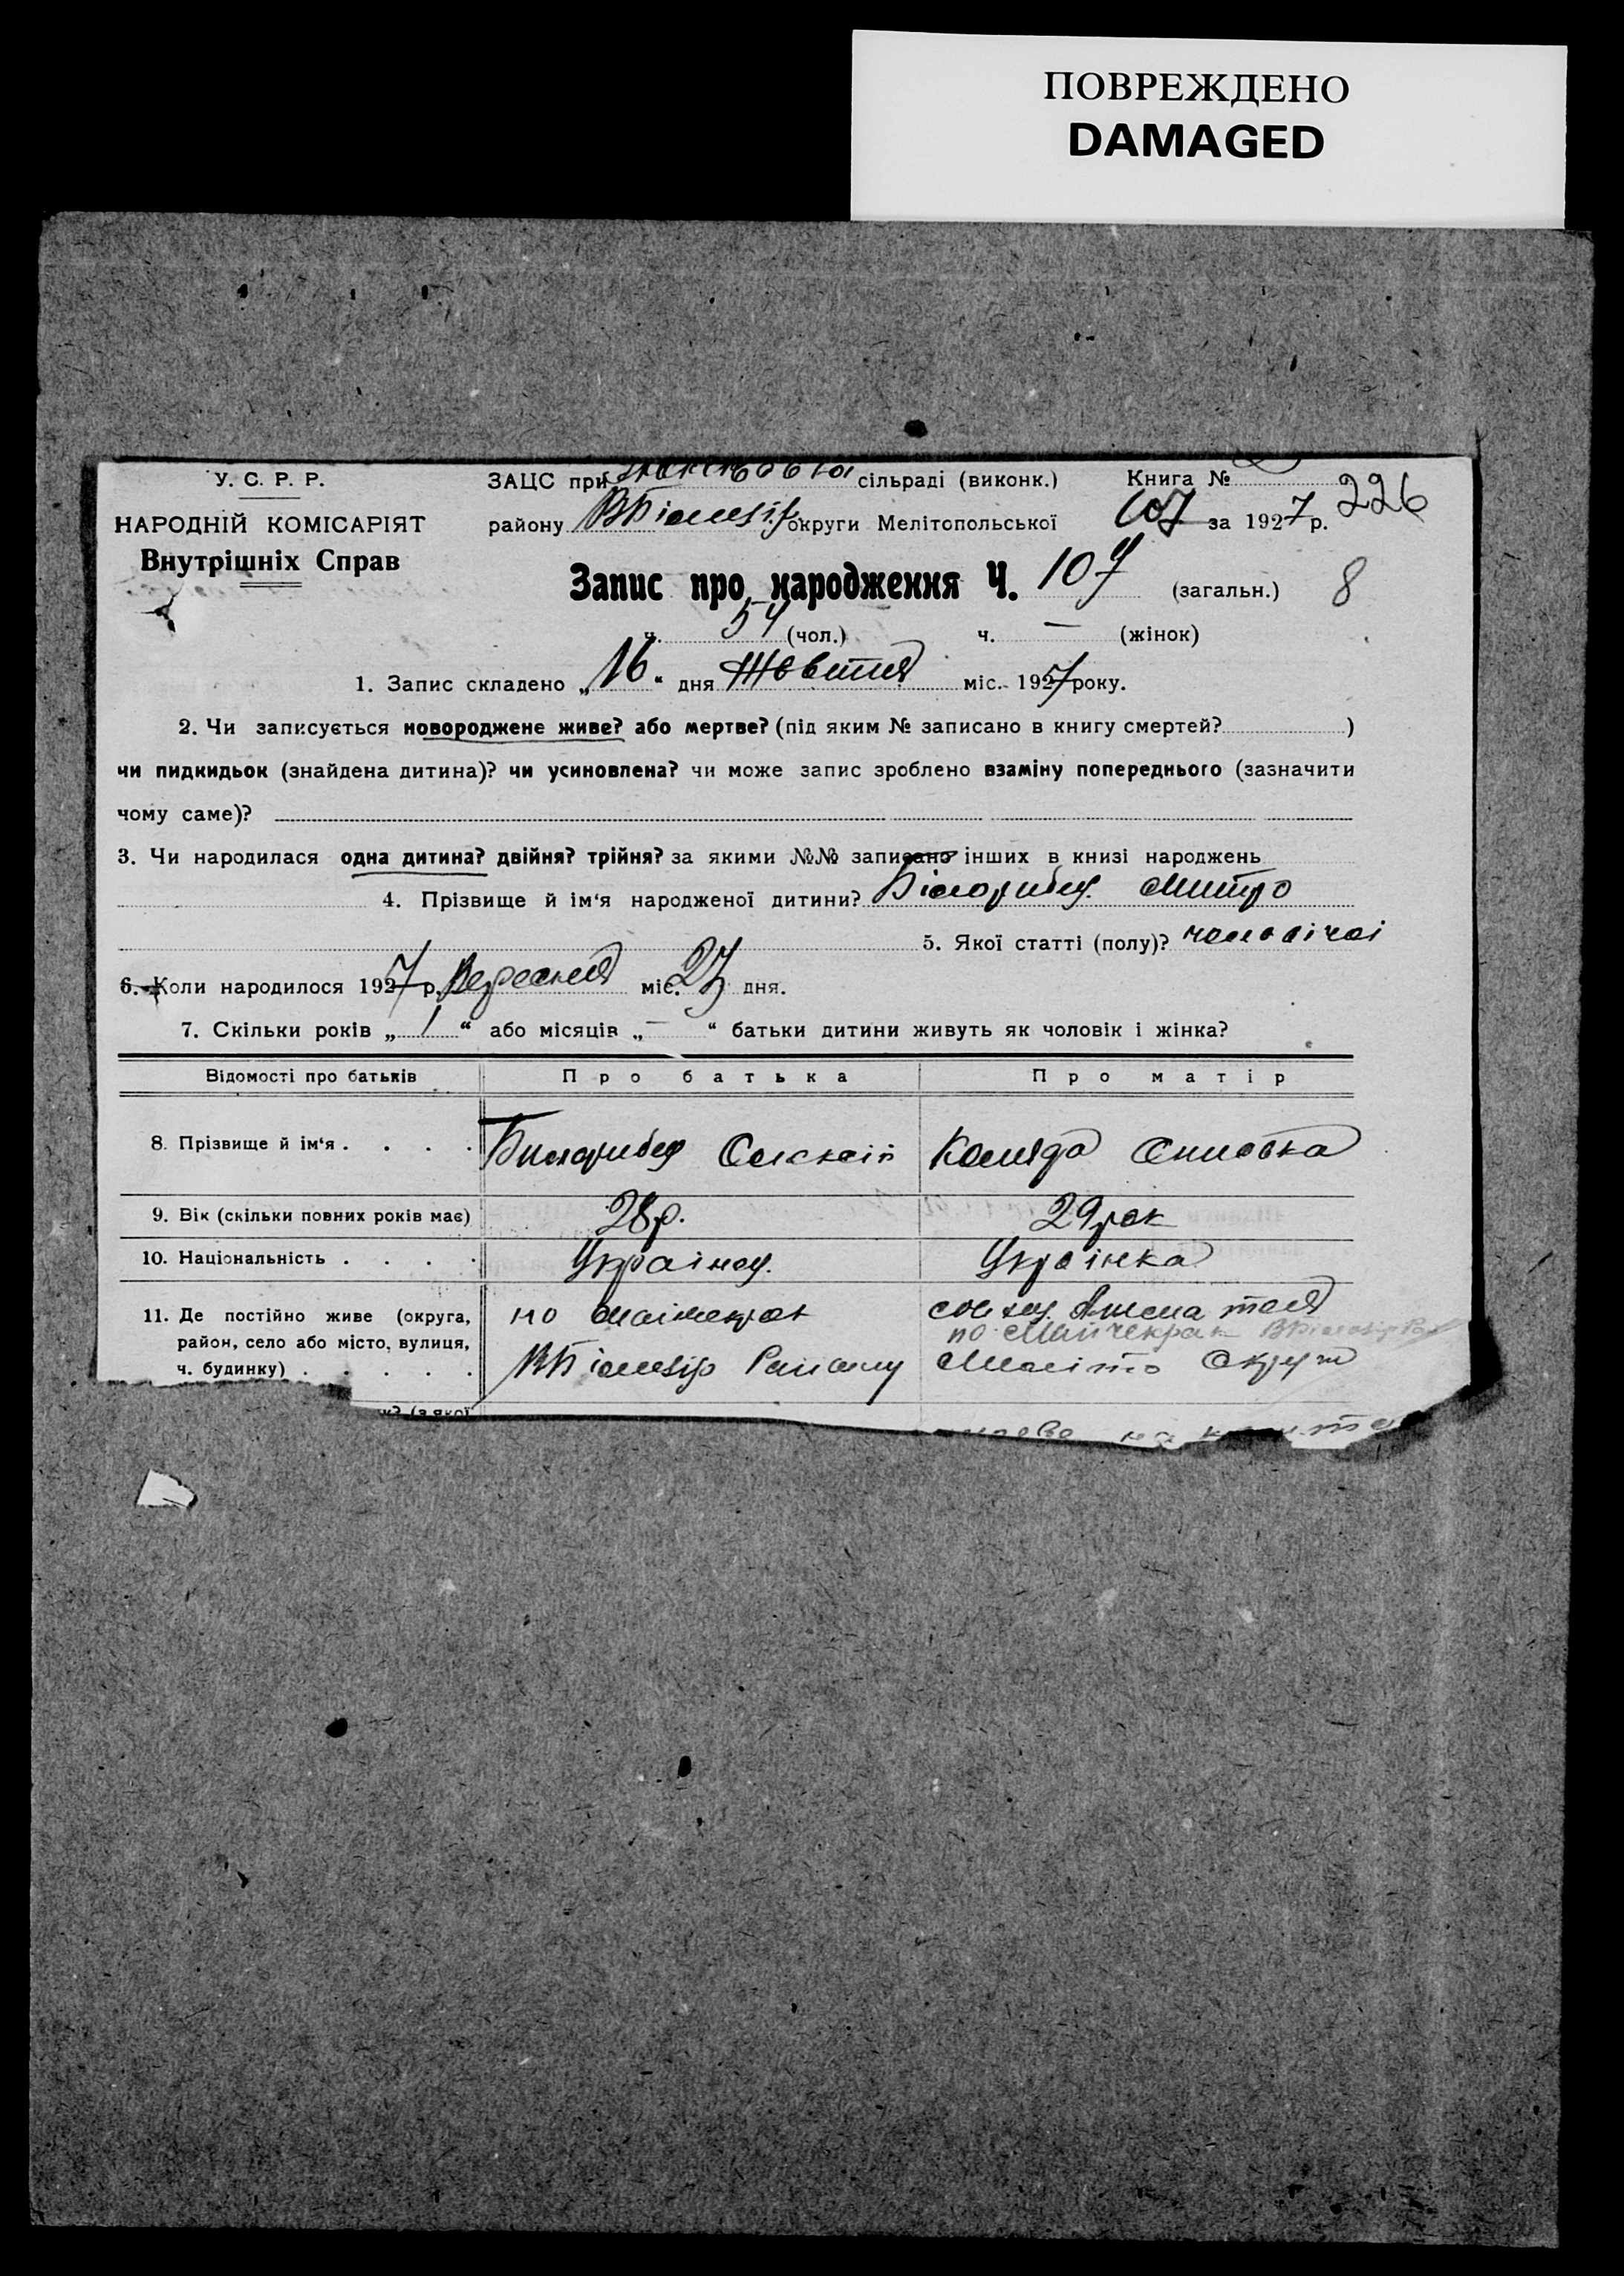 ПОВРЕЖДЕНО
DAMAGED
У. С. Р. Р.
НАРОДНІЙ КОМІСАРІЯТ
Внутрішніх Справ
ЗАЦС при сільраді (виконк.) Книга №
району округи Мелітопольської 107 за 1927 р. 226
Запис про народження Ч. 107 (загальн.) 8
ч. 54 (чол.) ч. — (жінок)
1. Запис складено „16“ дня Жовтня міс. 1927 року.
2. Чи записується новороджене живе? або мертве? (під яким № записано в книгу смертей? )
чи пидкидьок (знайдена дитина)? чи усиновлена? чи може запис зроблено взаміну попереднього (зазначити
чому саме)?
3. Чи народилася одна дитина? двійня? трійня? за якими №№ записано інших в книзі народжень
4. Прізвище й ім'я народженої дитини? Білорибця Митро
5. Якої статті (полу)? чоловічої
6. Коли народилося 1927 р. Вересня міс. 23 дня.
7. Скільки років „1“ або місяців „—“ батьки дитини живуть як чоловік і жінка?
Відомості про батьків Про батька Про матір
8. Прізвище й ім'я . . . . Олексій Коляда
9. Вік (скільки повних років має) 28 р. 29 рок
10. Національність . . . . Українец. Українка
11. Де постійно живе (округа,
район, село або місто, вулиця,
ч. будинку) . . . . .
по
Району
по
Округи
к? (з якої